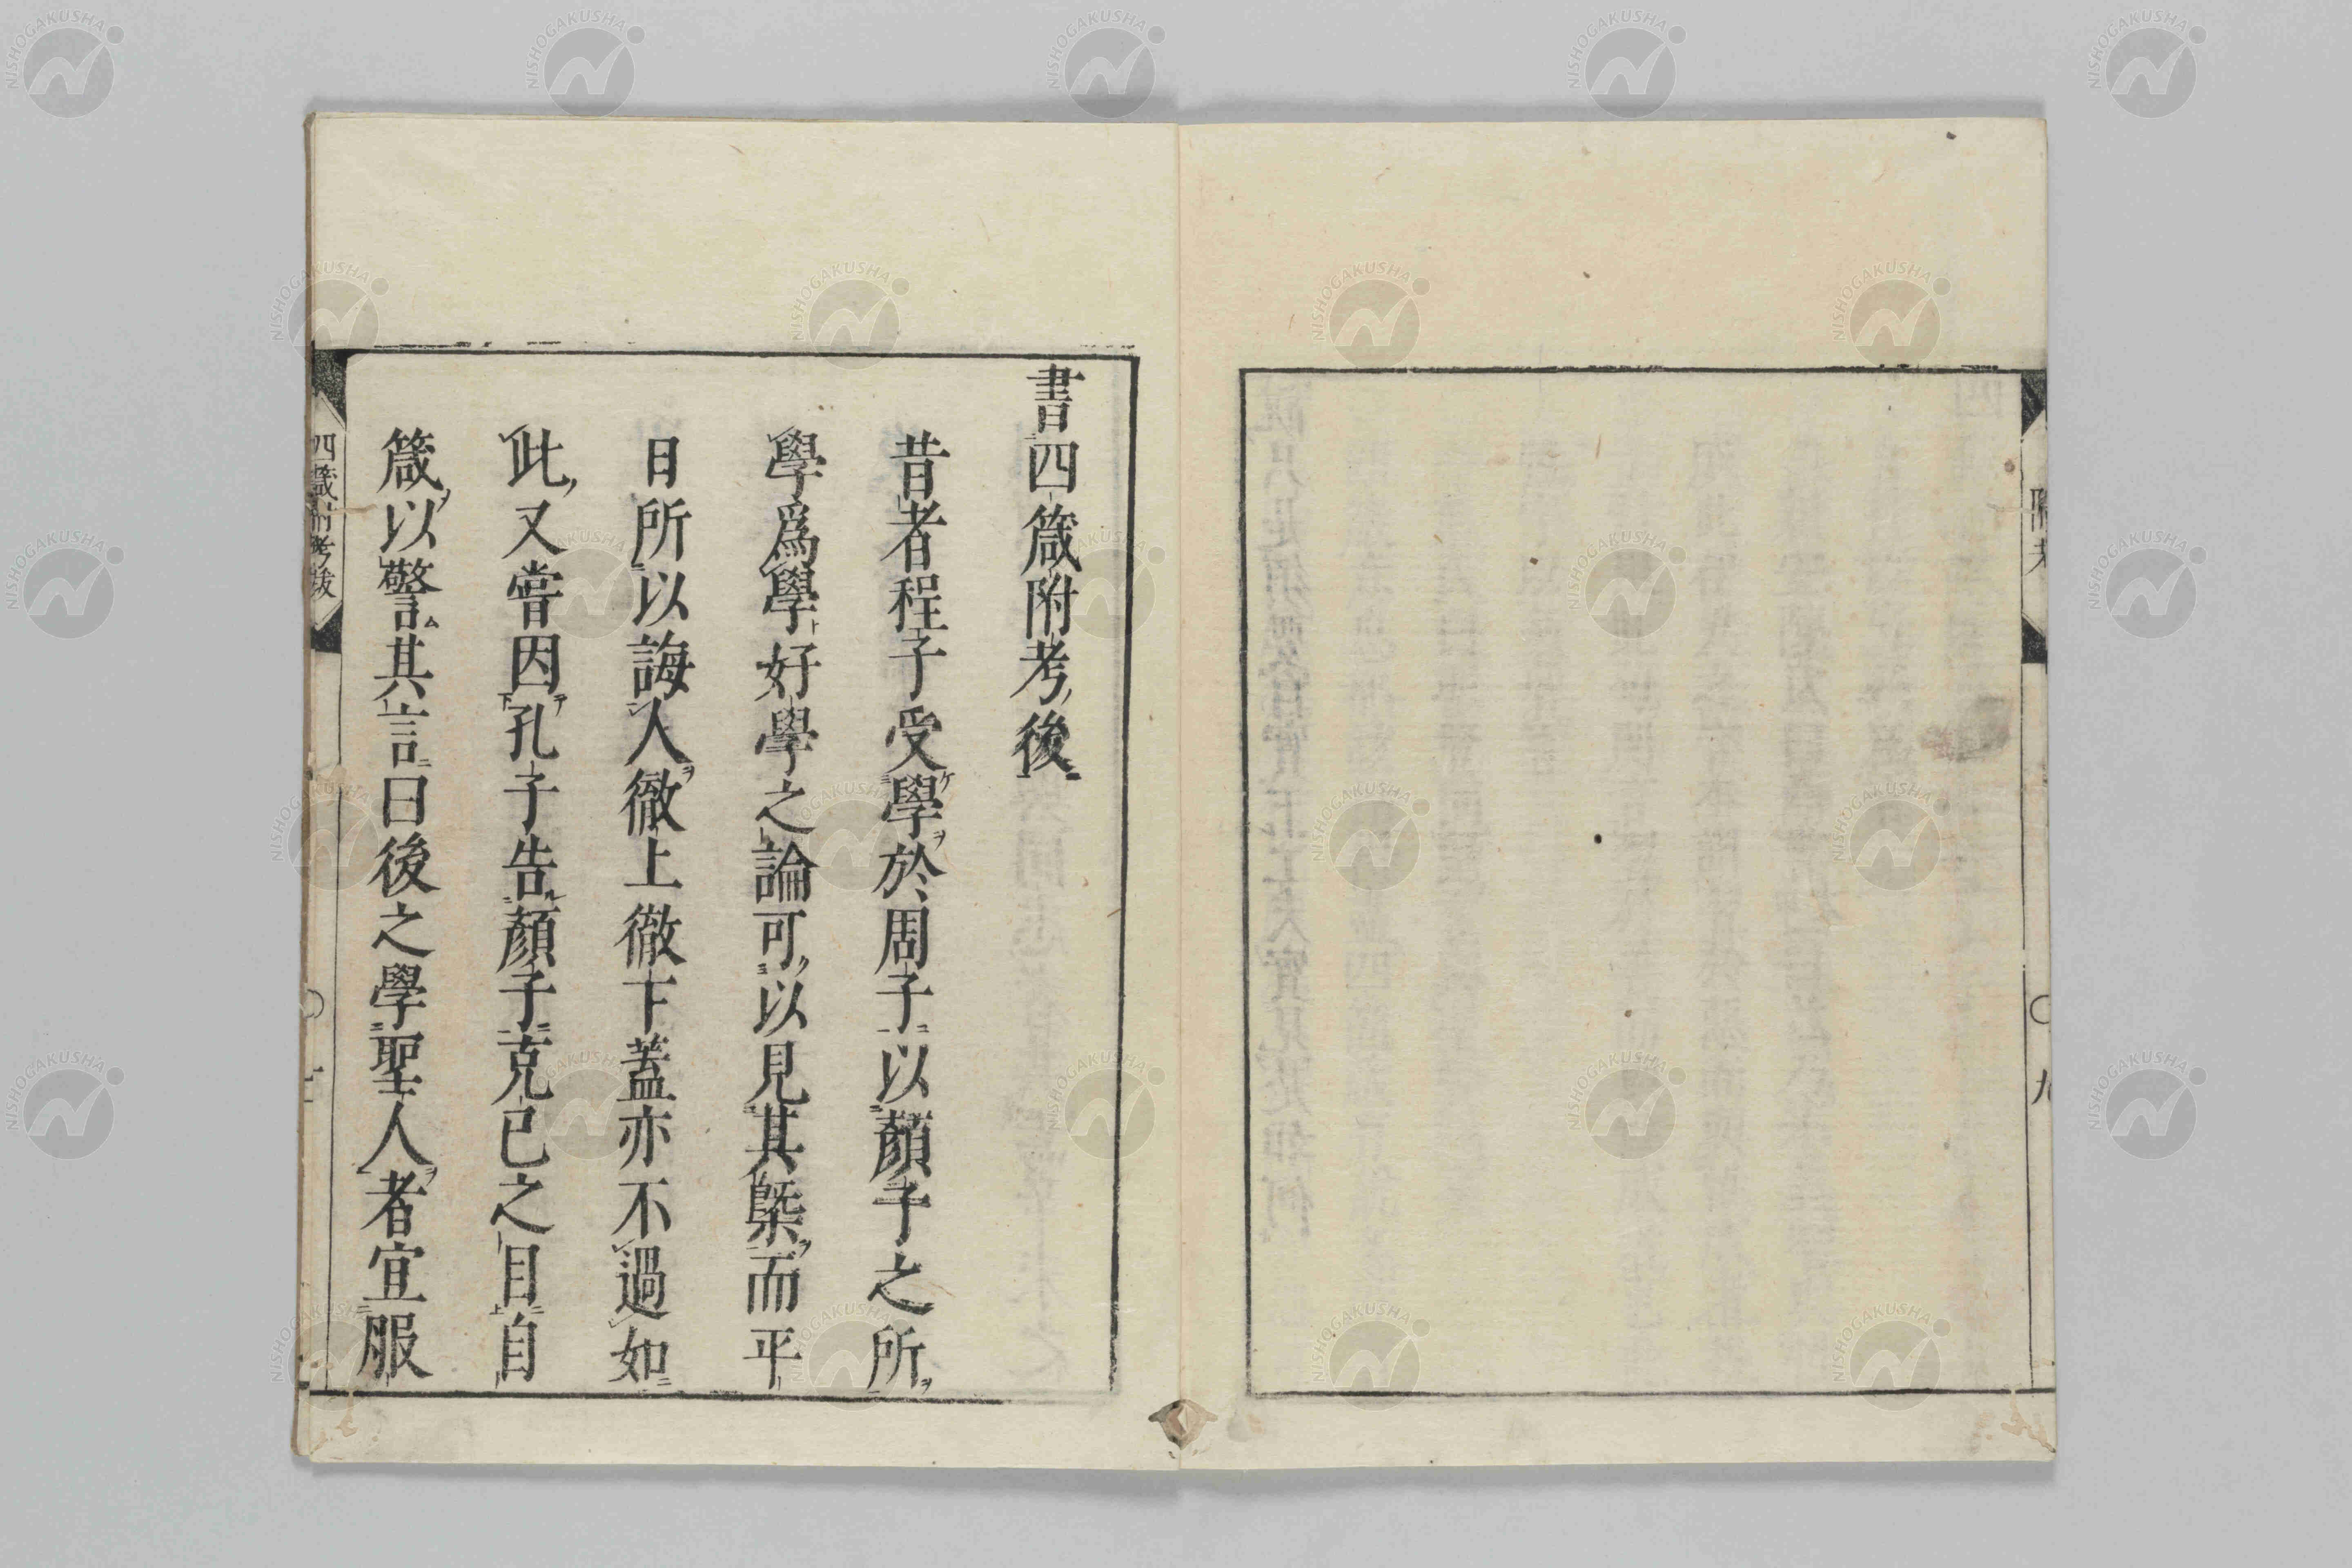 書四箴附考後
昔者程子受學於周子以顏子之所
學爲學好學之論可以見其槩而平
日所以誨人徹上徹下蓋亦不過如
此又嘗因孔子告顏子克己之目自
箴以警其言曰後之學聖人者宜服
四箴附考跋
附考
九
NISHOGAKUSHA